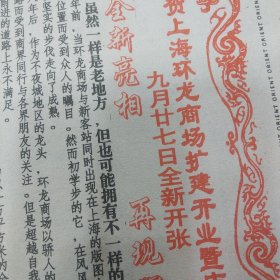 ORIENT ORIENT ORIENT
贺上海环龙商场扩建开业暨
九月廿七日全新开张
全新亮相 再现
虽然一样是老地方，但也可能拥有不一样的
年前，当环龙商场与新客站同时出现在上海的版图
位置而受到众人的瞩目。然而初学步的它，在风
坚实的步伐走向了成熟。
年后，作为不夜城地区的龙头，环龙商场以骄人的
而受到商界同行与各界朋友的关注。但是超越自我
前进的道路上永不满足。
方米的